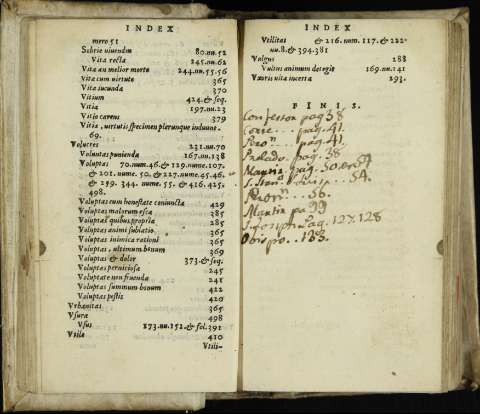 INDEX
mero 51
Sobrie viuendum 80.nu.52
Vita recta 245.nu.62
Vita an melior morte 244.nu.55.56
Vita cum virtute 365
Vita iucunda 370
Vitium 424.& seq.
Vitia 197.nu.23
Vitio carens 379
Vitia, virtutis specimen plerunque induunt.
69.
Volucres 231.nu.70
Voluntas punienda 167.nu.138
Voluptas 70.num.46.& 129.nume.107.
& 201.nume.50.& 227.nume.45.46.
& 299.344.nume.55.& 416.425.
498.
Voluptas cum honestate coniuncta 429
Voluptas malorum esca 385
Voluptas quibus propria 285
Voluptas animi sublatio 365
Voluptas inimica rationi 365
Voluptas, vltimum bonum 369
Voluptas & dolor 373.& seq.
Voluptas perniciosa 245
Voluptate non fruenda 241
Voluptas summum bonum 422
Voluptas pestis 420
Vrbanitas 365
Vsura 498
Vsus 273.nu.152.& fol.391
Vtile 410
Vtili-
INDEX
Vtilitas & 216.num.117.& 222.
nu.8.& 394.381
Vulgus 188
Vultus animum detegit 169.nu.141
Vxoris vita incerta 293.
FINIS.
Confessor pag 38
pag. 41.
pag. 41
Prelado. pag. 38.
pag. 50
54.
56.
Martir pa 99
pag. 127. 128
Obispo. 133.